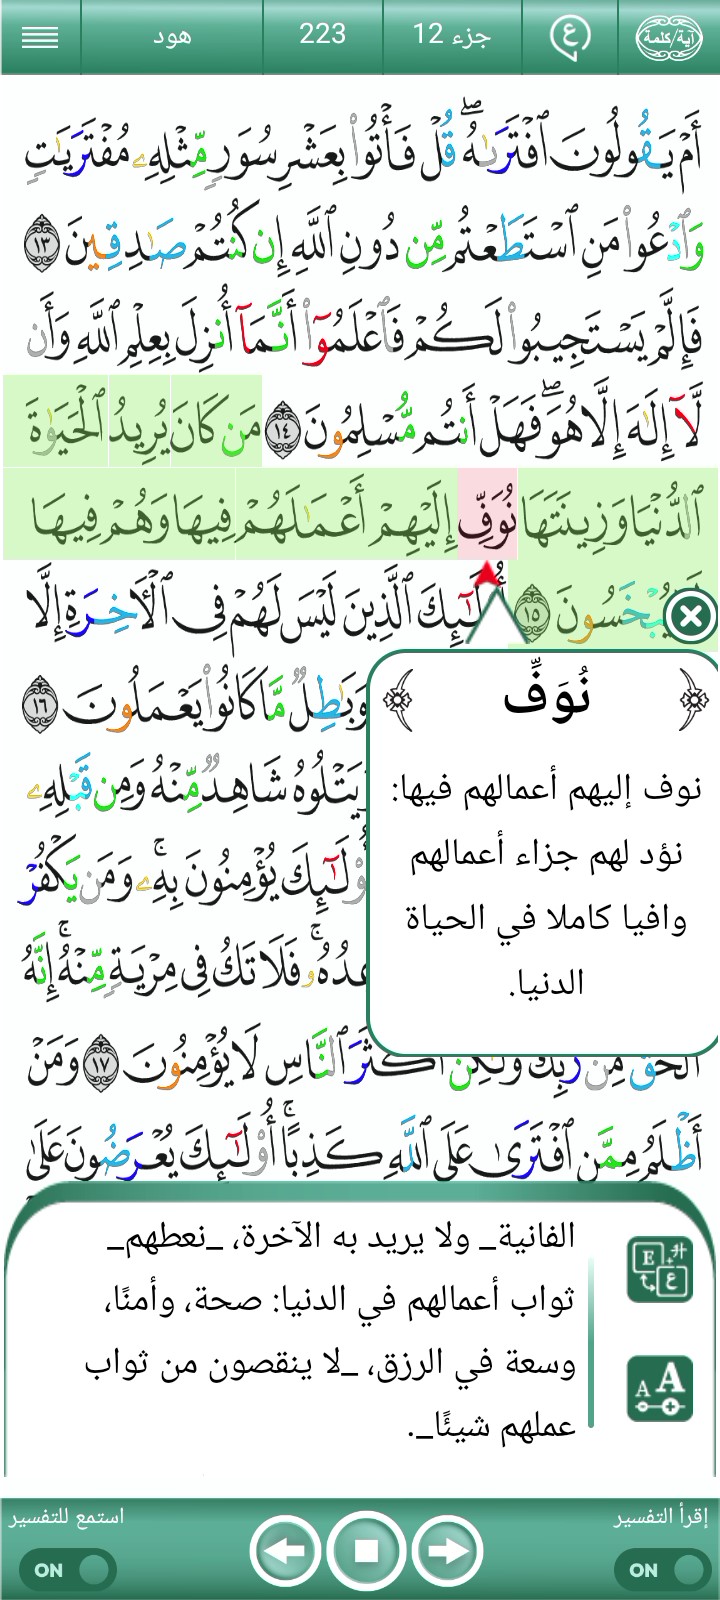 هود
223
جزء 12
ع
آية/كلمة
أَمْ يَقُولُونَ ٱفْتَرَىٰهُۖ قُلْ فَأْتُوا۟ بِعَشْرِ سُوَرٍ مِّثْلِهِۦ مُفْتَرَيَٰتٍ
وَٱدْعُوا۟ مَنِ ٱسْتَطَعْتُم مِّن دُونِ ٱللَّهِ إِن كُنتُمْ صَٰدِقِينَ ١٣
فَإِلَّمْ يَسْتَجِيبُوا۟ لَكُمْ فَٱعْلَمُوٓا۟ أَنَّمَآ أُنزِلَ بِعِلْمِ ٱللَّهِ وَأَن
لَّآ إِلَٰهَ إِلَّا هُوَۖ فَهَلْ أَنتُم مُّسْلِمُونَ ١٤ مَن كَانَ يُرِيدُ ٱلْحَيَوٰةَ
ٱلدُّنْيَا وَزِينَتَهَا نُوَفِّ إِلَيْهِمْ أَعْمَٰلَهُمْ فِيهَا وَهُمْ فِيهَا
يُبْخَسُونَ ١٥ أُو۟لَٰٓئِكَ ٱلَّذِينَ لَيْسَ لَهُمْ فِى ٱلْءَاخِرَةِ إِلَّا
وَبَٰطِلٌ مَّا كَانُوا۟ يَعْمَلُونَ ١٦
وَيَتْلُوهُ شَاهِدٌ مِّنْهُ وَمِن قَبْلِهِۦ
أُو۟لَٰٓئِكَ يُؤْمِنُونَ بِهِۦۚ وَمَن يَكْفُرْ
فَلَا تَكُ فِى مِرْيَةٍ مِّنْهُۚ إِنَّهُ
ٱلْحَقُّ مِن رَّبِّكَ وَلَٰكِنَّ أَكْثَرَ ٱلنَّاسِ لَا يُؤْمِنُونَ ١٧ وَمَنْ
أَظْلَمُ مِمَّنِ ٱفْتَرَىٰ عَلَى ٱللَّهِ كَذِبًاۚ أُو۟لَٰٓئِكَ يُعْرَضُونَ عَلَىٰ
نُوَفِّ
نوف إليهم أعمالهم فيها:
نؤد لهم جزاء أعمالهم
وافيا كاملا في الحياة
الدنيا.
الفانية_ ولا يريد به الآخرة، _نعطهم_
ثواب أعمالهم في الدنيا: صحة، وأمنًا،
وسعة في الرزق، _لا ينقصون من ثواب
عملهم شيئًا_.
E ع
A A
إقرأ التفسير
ON
استمع للتفسير
ON